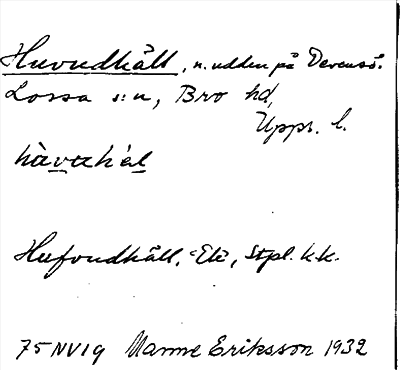 Huvudhäll, n. udden på Dävensö.
Lossa s:n, Bro hd,
Upps. l.
hùvuhä́l
Hufvudhäll, Ek, Stpl. k.k.
75 NV 1g Manne Eriksson 1932